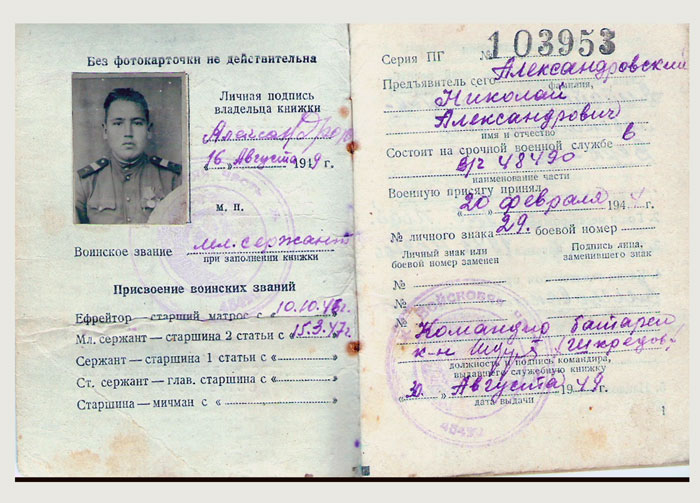 Без фотокарточки не действительна
Личная подпись
владельца книжки
„16“ Августа 1949г
М. П.
Воинское звание мл. сержант
при заполнении книжки
Присвоение воинских званий
Ефрейтор — старший матрос с „10.10.46г.
Мл. сержант — старшина 2 статьи с „15.3.47г.
Сержант — старшина 1 статьи с „
Ст. сержант — глав. старшина с „
Старшина — мичман с „
Серия ПГ № 103953
Предъявитель сего Александровский
фамилия,
Николай
Александрович
имя и отчество
Состоит на срочной военной службе в
в/ч 48490
наименование части
Военную присягу принял
„20“ февраля 1944г.
№ личного знака 29. боевой номер
Личный знак или Подпись лица,
боевой номер заменен заменившего знак
№
№
№
Командир батареи
к-н
должность и подпись командира,
выдавшего служебную книжку
„20“ Августа 1949г.
дата выдачи
1